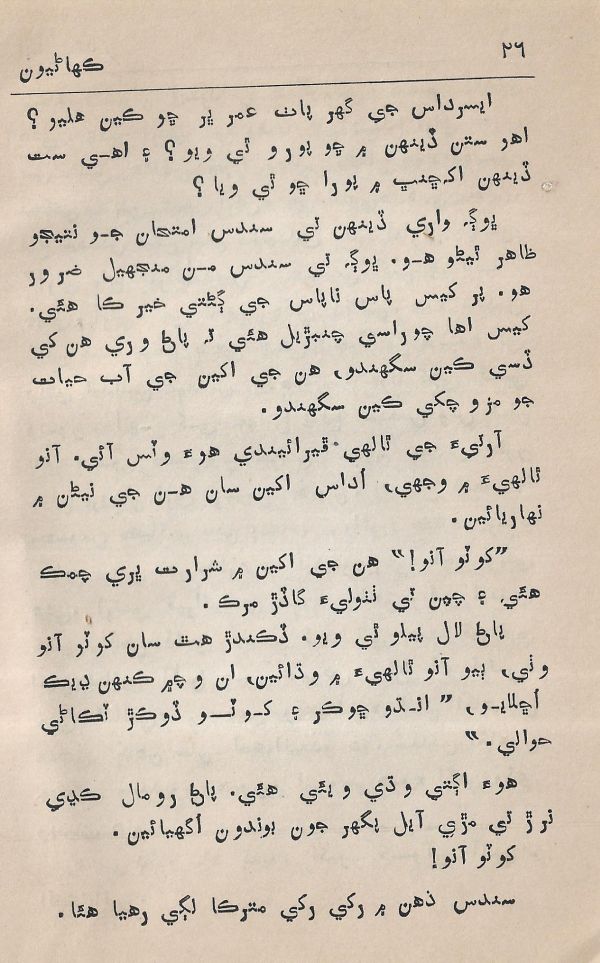 ٢٦
ڪهاڻيون
ايسرداس جي گهر پاٺ عمر ڀر ڇو ڪين هليو؟
اهو ستن ڏينهن ۾ ڇو پورو ٿي ويو؟ ۽ اهي ست
ڏينهن اکڇنڀ ۾ پورا ڇو ٿي ويا؟
ڀوڳ واري ڏينهن ئي سندس امتحان جو نتيجو
ظاهر ٿيڻو هو. ڀوڳ تي سندس من منجهيل ضرور
هو. پر ڪيس پاس ناپاس جي ڳڻتي خير ڪا هئي.
کيس اها چوراسي چنبڙيل هئي تہ پاڻ وري هن کي
ڏسي ڪين سگهندو، هن جي اکين جي آب حيات
جو مزو چکي ڪين سگهندو.
آرتيءَ جي ٿالهي ڦيرائيندي هوءَ وٽس آئي. آنو
ٿالهيءَ ۾ وجهي، اُداس اکين سان هن جي نيڻن ۾
نهاريائين.
”کوٽو آنو!“ هن جي اکين ۾ شرارت ڀري چمڪ
هئي ۽ چپن تي ٺٺوليءَ گاڏڙ مرڪ.
پاڻ لال پيلو ٿي ويو. ڏڪندڙ هٿ سان کوٽو آنو
وٺي، ٻيو آنو ٿالهيءَ ۾ وڌائين، ان وچ ۾ ڪنهن ڍڪ
اُڇلايو، ”انڌو ڇوڪر ۽ کوٽو ڏوڪڙ ٺڪاڻي
حوالي.“
هوءَ اڳتي وڌي ويئي هئي. پاڻ رومال ڪڍي
نرڙ تي مڙي آيل پگهر جون بوندون اُگهيائين.
کوٽو آنو!
سندس ذهن ۾ رکي رکي مترڪا لڳي رهيا هئا.